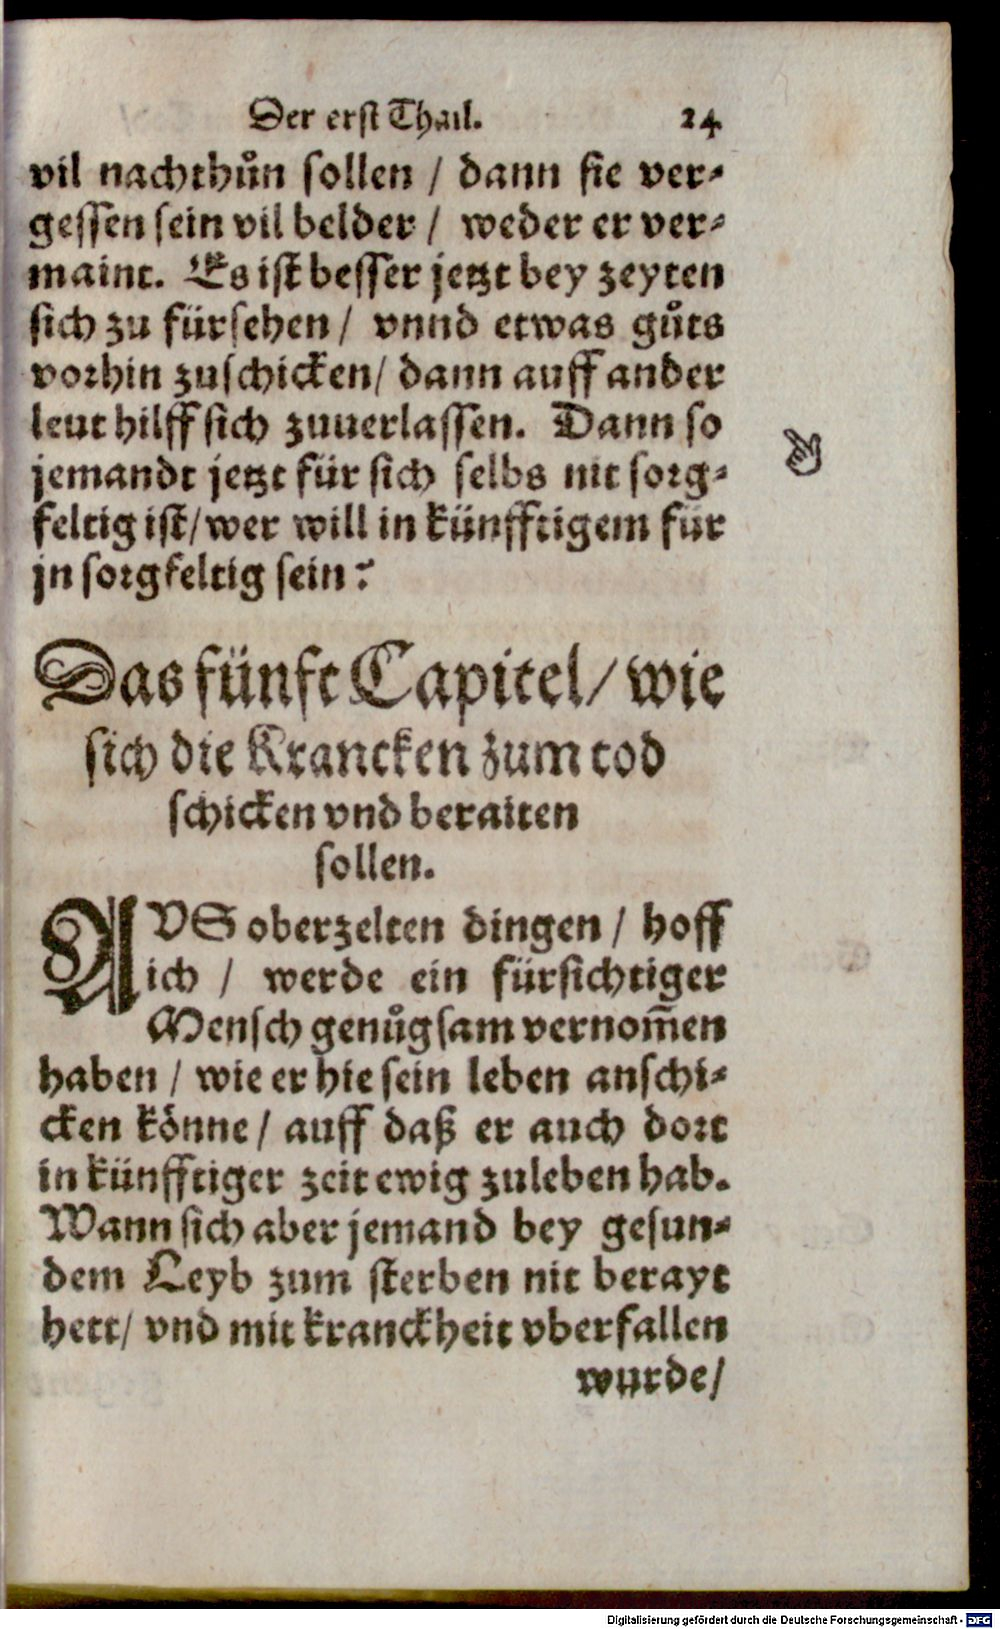 Der erst Thail. 24
vil nachthůn sollen / dann sie ver⸗
gessen sein vil belder / weder er ver⸗
maint. Es ist besser jetzt bey zeyten
sich zu fürsehen / vnnd etwas gůts
vorhin zuschicken / dann auff ander
leut hilff sich zuuerlassen. Dann so
jemandt jetzt für sich selbs nit sorg⸗
feltig ist / wer will in künfftigem für
jn sorgfeltig sein?
Das fünft Capitel / wie
sich die Krancken zum tod
schicken vnd beraiten
sollen.
AVS oberzelten dingen / hoff
ich / werde ein fürsichtiger
Mensch genůgsam vernom̄en
haben / wie er hie sein leben anschi⸗
cken könne / auff daß er auch dort
in künfftiger zeit ewig zuleben hab.
Wann sich aber jemand bey gesun⸗
dem Leyb zum sterben nit berayt
hett / vnd mit kranckheit vberfallen
wurde /
Digitalisierung gefördert durch die Deutsche Forschungsgemeinschaft - DFG